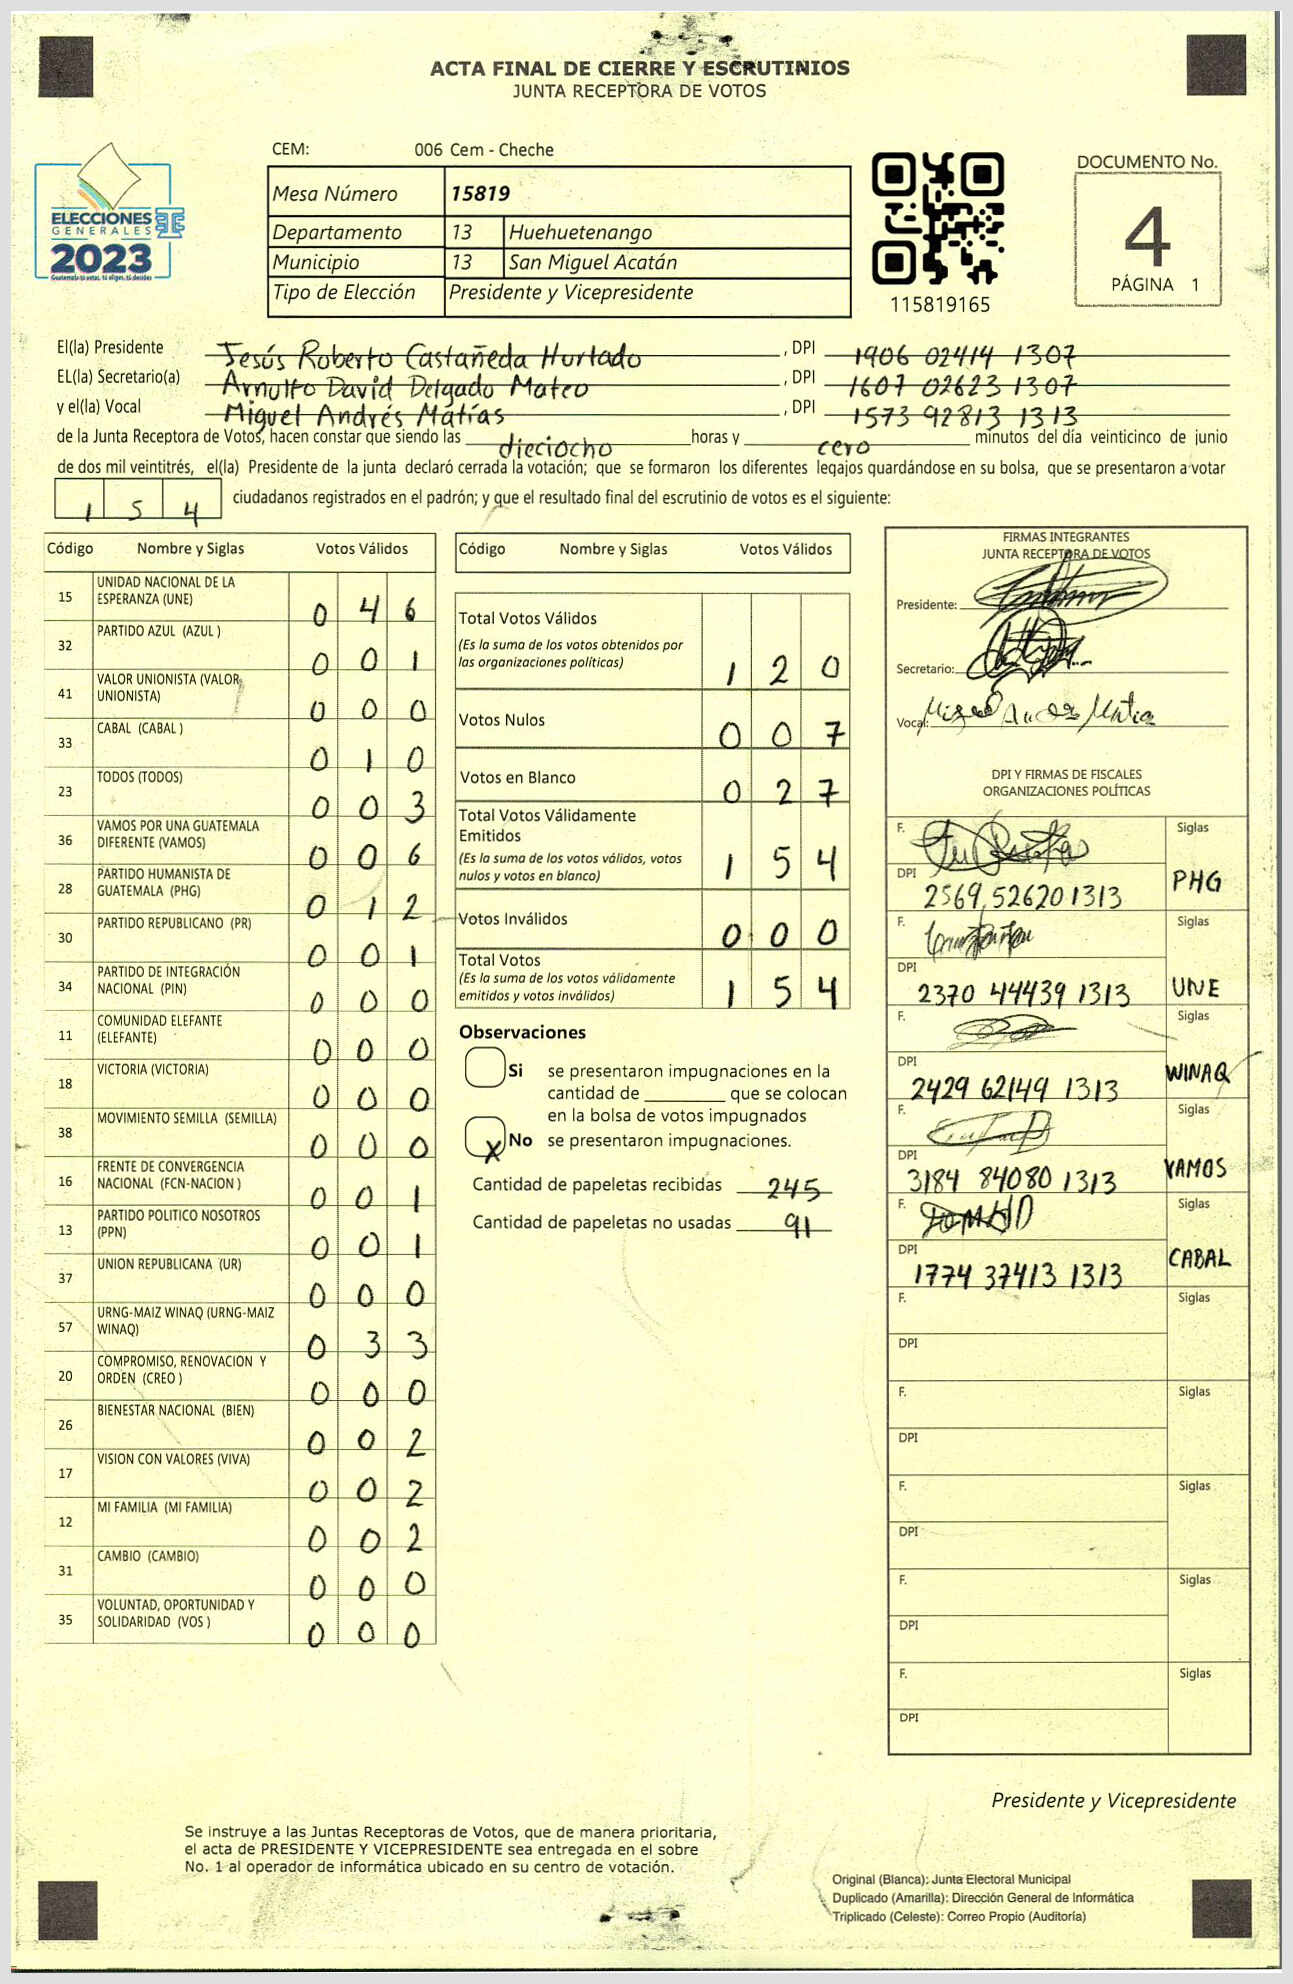 ACTA FINAL DE CIERRE Y ESCRUTINIOS
JUNTA RECEPTORA DE VOTOS
ELECCIONES
GENERALES
2023
Guatemala tú votas, tú eliges, tú decides
CEM: 006 Cem - Cheche
Mesa Número 15819
Departamento 13 Huehuetenango
Municipio 13 San Miguel Acatán
Tipo de Elección Presidente y Vicepresidente
115819165
DOCUMENTO No.
4
PÁGINA 1
El(la) Presidente Jesús Roberto Castañeda Hurtado , DPI 1906 02414 1307
EL(la) Secretario(a) Arnulfo David Delgado Mateo , DPI 1607 02623 1307
y el(la) Vocal Miguel Andrés Matías , DPI 1573 92813 1313
de la Junta Receptora de Votos, hacen constar que siendo las dieciocho horas y cero minutos del día veinticinco de junio
de dos mil veintitrés, el(la) Presidente de la junta declaró cerrada la votación; que se formaron los diferentes legajos guardándose en su bolsa, que se presentaron a votar
1 5 4 ciudadanos registrados en el padrón; y que el resultado final del escrutinio de votos es el siguiente:
Código Nombre y Siglas Votos Válidos
15 UNIDAD NACIONAL DE LA ESPERANZA (UNE) 0 4 6
32 PARTIDO AZUL (AZUL ) 0 0 1
41 VALOR UNIONISTA (VALOR UNIONISTA) 0 0 0
33 CABAL (CABAL ) 0 1 0
23 TODOS (TODOS) 0 0 3
36 VAMOS POR UNA GUATEMALA DIFERENTE (VAMOS) 0 0 6
28 PARTIDO HUMANISTA DE GUATEMALA (PHG) 0 1 2
30 PARTIDO REPUBLICANO (PR) 0 0 1
34 PARTIDO DE INTEGRACIÓN NACIONAL (PIN) 0 0 0
11 COMUNIDAD ELEFANTE (ELEFANTE) 0 0 0
18 VICTORIA (VICTORIA) 0 0 0
38 MOVIMIENTO SEMILLA (SEMILLA) 0 0 0
16 FRENTE DE CONVERGENCIA NACIONAL (FCN-NACION ) 0 0 1
13 PARTIDO POLITICO NOSOTROS (PPN) 0 0 1
37 UNION REPUBLICANA (UR) 0 0 0
57 URNG-MAIZ WINAQ (URNG-MAIZ WINAQ) 0 3 3
20 COMPROMISO, RENOVACION Y ORDEN (CREO ) 0 0 0
26 BIENESTAR NACIONAL (BIEN) 0 0 2
17 VISION CON VALORES (VIVA) 0 0 2
12 MI FAMILIA (MI FAMILIA) 0 0 2
31 CAMBIO (CAMBIO) 0 0 0
35 VOLUNTAD, OPORTUNIDAD Y SOLIDARIDAD (VOS ) 0 0 0
Código Nombre y Siglas Votos Válidos
Total Votos Válidos
(Es la suma de los votos obtenidos por
las organizaciones políticas) 1 2 0
Votos Nulos 0 0 7
Votos en Blanco 0 2 7
Total Votos Válidamente
Emitidos
(Es la suma de los votos válidos, votos
nulos y votos en blanco) 1 5 4
Votos Inválidos 0 0 0
Total Votos
(Es la suma de los votos válidamente
emitidos y votos inválidos) 1 5 4
Observaciones
Si se presentaron impugnaciones en la
cantidad de ________ que se colocan
en la bolsa de votos impugnados
X No se presentaron impugnaciones.
Cantidad de papeletas recibidas 245
Cantidad de papeletas no usadas 91
FIRMAS INTEGRANTES
JUNTA RECEPTORA DE VOTOS
Presidente:
Secretario:
Vocal:
DPI Y FIRMAS DE FISCALES
ORGANIZACIONES POLÍTICAS
F. Siglas
DPI 2569 52620 1313 PHG
F. Siglas
DPI 2370 44439 1313 UNE
F. Siglas
DPI 2429 62149 1313 WINAQ
F. Siglas
DPI 3184 84080 1313 VAMOS
F. Siglas
DPI 1774 37413 1313 CABAL
F. Siglas
DPI
F. Siglas
DPI
F. Siglas
DPI
F. Siglas
DPI
F. Siglas
DPI
Presidente y Vicepresidente
Se instruye a las Juntas Receptoras de Votos, que de manera prioritaria,
el acta de PRESIDENTE Y VICEPRESIDENTE sea entregada en el sobre
No. 1 al operador de informática ubicado en su centro de votación.
Original (Blanca): Junta Electoral Municipal
Duplicado (Amarilla): Dirección General de Informática
Triplicado (Celeste): Correo Propio (Auditoría)